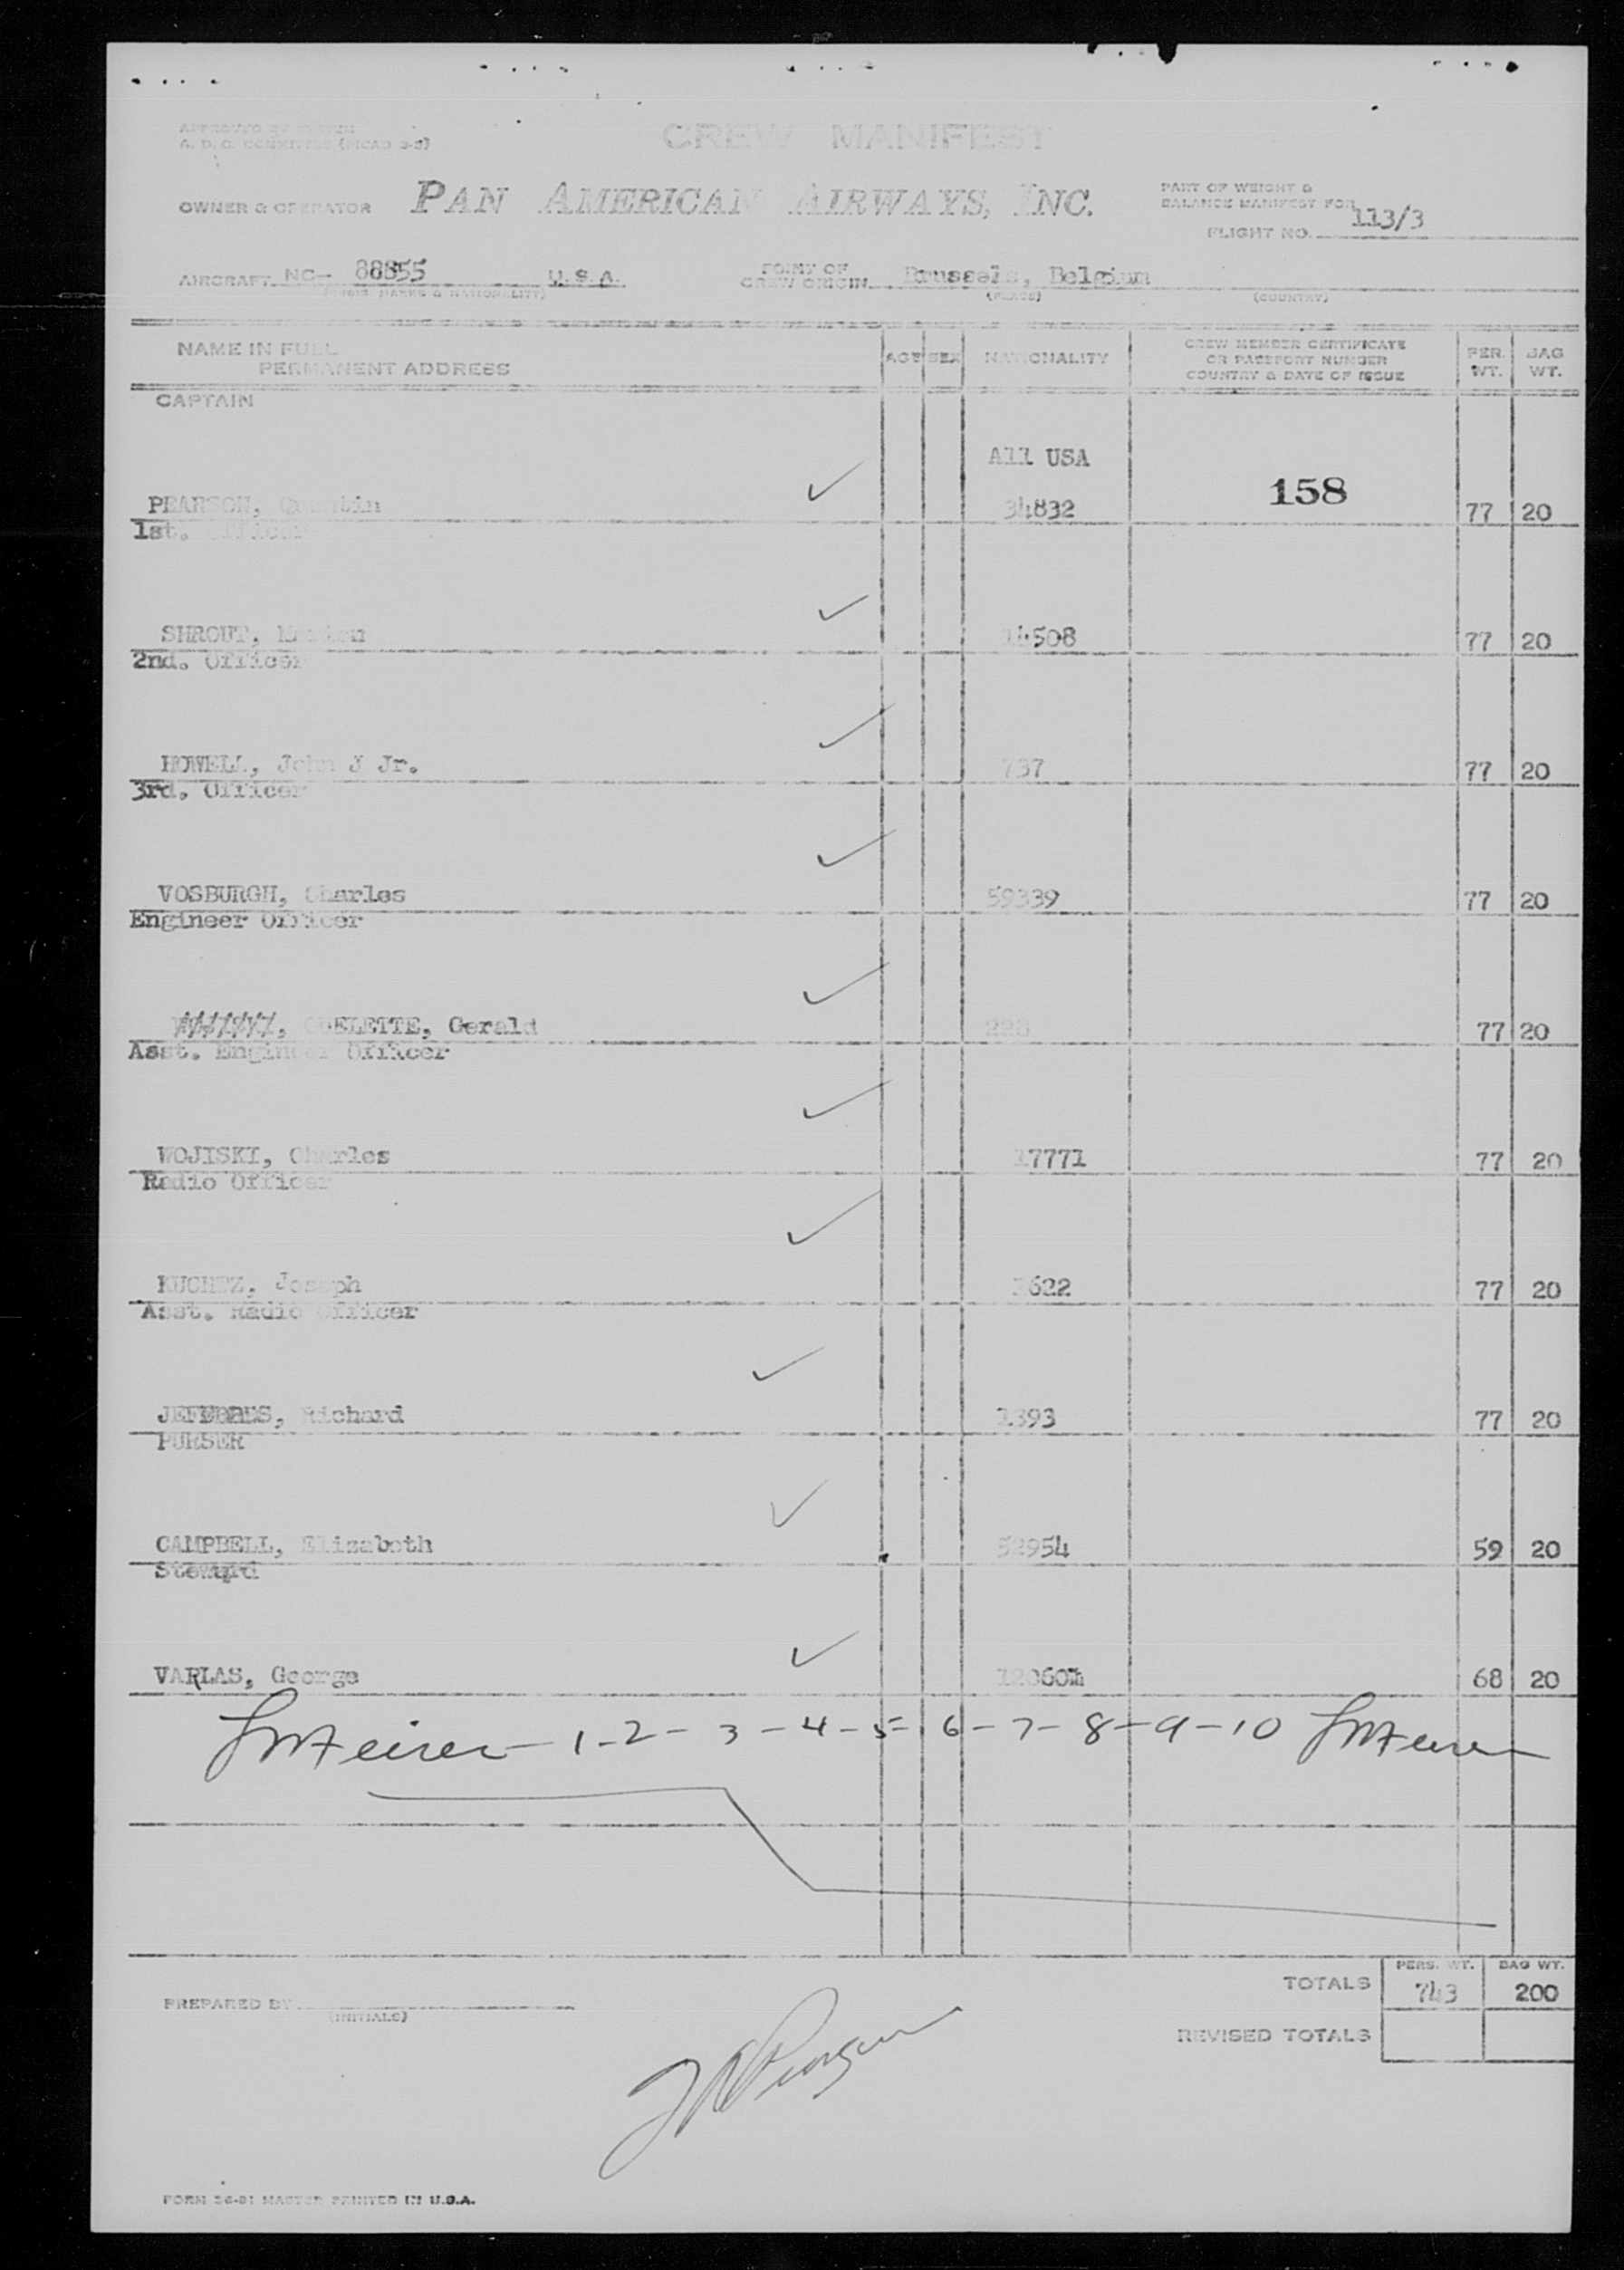 A. D. C. (PICAO 3-2)
CREW MANIFEST
OWNER & OPERATOR PAN AMERICAN AIRWAYS, INC.
PART OF WEIGHT &
BALANCE MANIFEST FOR
FLIGHT NO. 113/3
AIRCRAFT NC- 88855 U.S.A.
POINT OF
CREW ORIGIN Brussels, Belgium
(PLACE) (COUNTRY)
NAME IN FULL
PERMANENT ADDRESS
AGE SEX NATIONALITY
CREW MEMBER CERTIFICATE
OR PASSPORT NUMBER
COUNTRY & DATE OF ISSUE
PER. WT.
BAG WT.
CAPTAIN
All USA
158
PEARSON, 34832 77 20
1st. Officer
SHROUT, 14508 77 20
2nd. Officer
HOWELL, John J Jr. 737 77 20
3rd. Officer
VOSBURGH, Charles 59339 77 20
Engineer Officer
Gerald 77 20
Asst. Engineer Officer
WOJISKI, Charles 17771 77 20
Radio Officer
Joseph 77 20
Asst. Radio Officer
Richard 1393 77 20
PURSER
CAMPBELL, Elizabeth 52954 59 20
Steward
VARLAS, George 68 20
1-2-3-4-5-6-7-8-9-10
PERS. WT. BAG WT.
TOTALS 743 200
PREPARED BY
(INITIALS)
REVISED TOTALS
FORM MASTER PRINTED IN U.S.A.